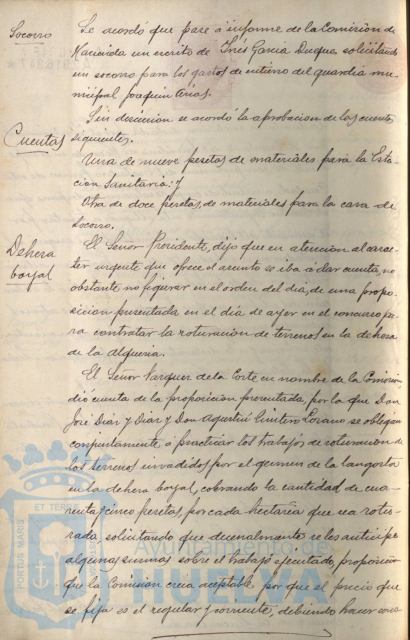 Socorro
Se acordó que pase á informe de la Comisión de
Hacienda un escrito de Inés Garcia Duque, solicitando
un socorro para los gastos de entierro del guardia mu-
nicipal Joaquin
Cuentas
Sin discusión se acordó la aprobacion de las cuentas
siguientes.
Una de nueve pesetas de materiales para la Esta-
cion Sanitaria: y
Otra de doce pesetas, de materiales para la casa de
Socorro.
Dehesa
boyal
El Señor Presidente, dijo que en atencion al carac-
ter urgente que ofrece el asunto se iba á dar cuenta, no
obstante no figurar en el orden del dia, de una propo-
sicion presentada en el dia de ayer en el concurso pa-
ra contratar la roturacion de terrenos en la dehesa
de la Alqueria.
El Señor Vazquez de la Corte, en nombre de la Comision
dió cuenta de la proposicion presentada, por la que Don
José Diaz y Diaz y Don Agustin Lozano se obligan
conjuntamente á practicar los trabajos de roturacion de
los terrenos invadidos por el germen de la langosta
en la dehesa boyal, cobrando la cantidad de cua-
renta y cinco pesetas, por cada hectaria que sea rotu-
rada, solicitando que decenalmente se les anticipe
algunas sumas sobre el trabajo ejecutado, proposicion
que la Comision creia aceptable por que el precio que
se fija es el regular y corriente, debiendo hacer cons-
PORTUS MARIS
ET TERRAE
Ayuntamiento de
HUELVA